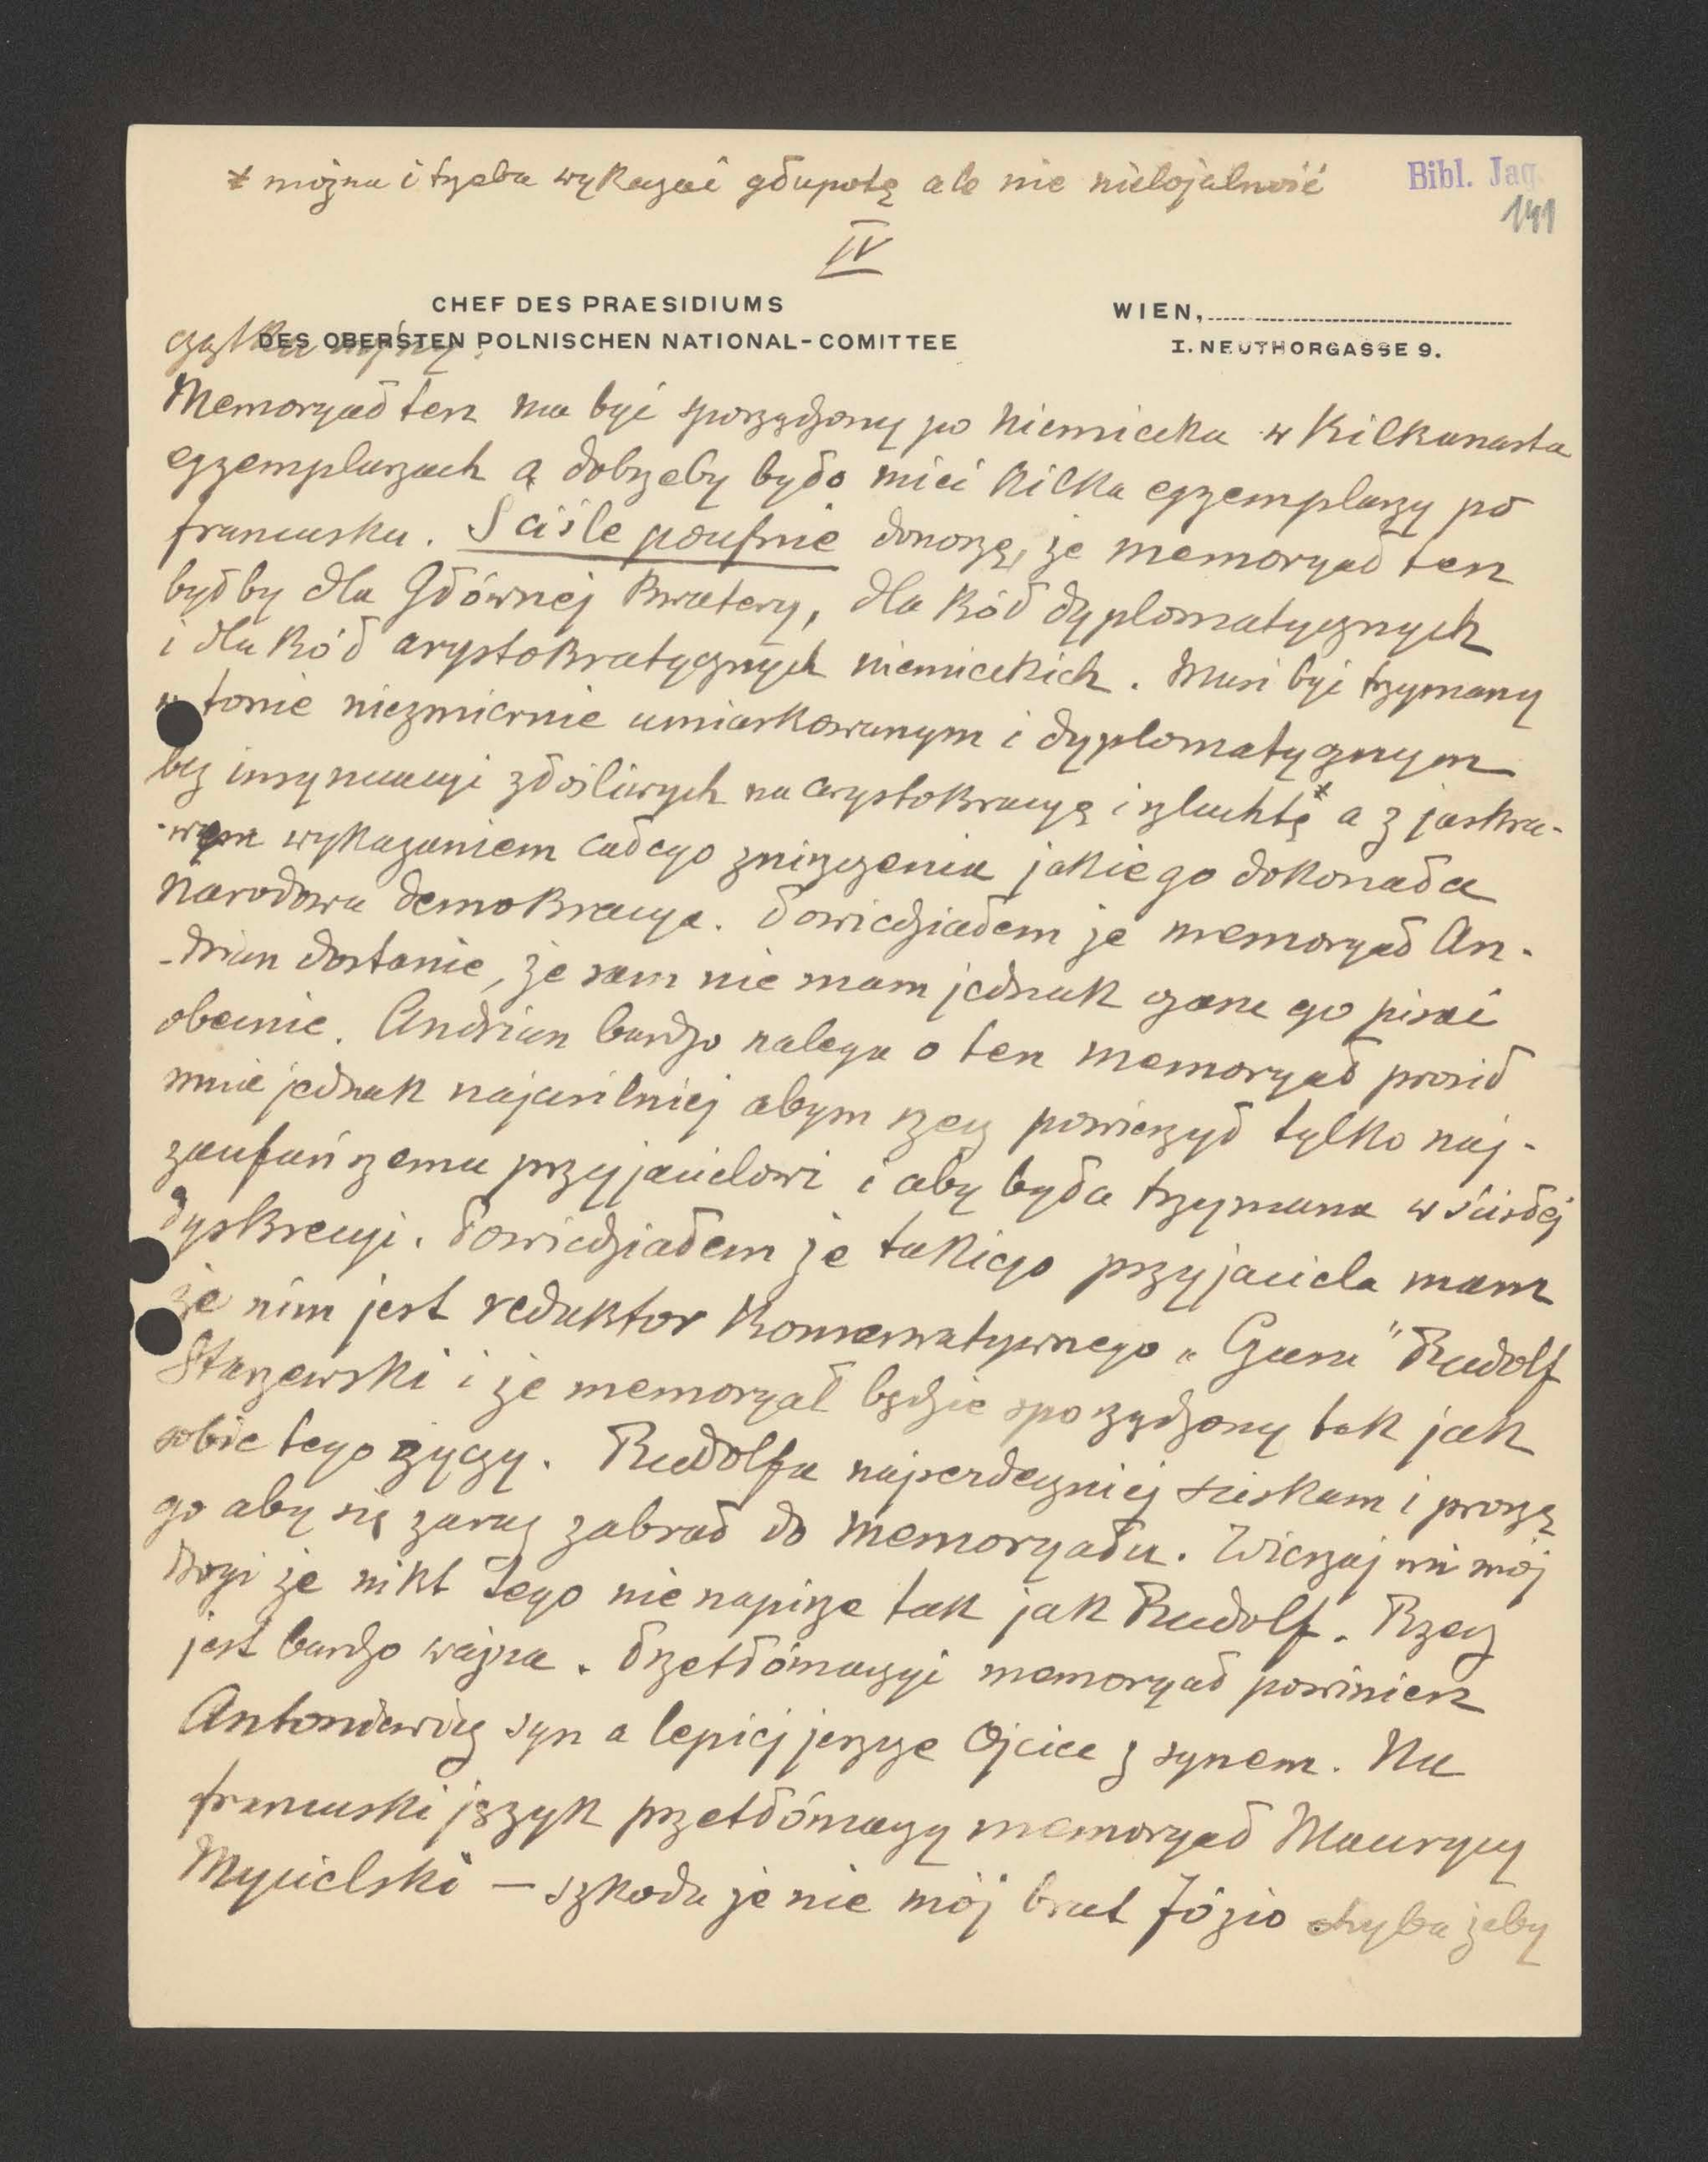 * można i trzeba wykazać głupotę ale nie nielojalność
Bibl. Jag.
141
IV
CHEF DES PRAESIDIUMS
DES OBERSTEN POLNISCHEN NATIONAL-COMITTEE
WIEN,
I. NEUTHORGASSE 9.
czątku wojny.
Memoryał ten ma być sporządzony po niemiecku w kilkunastu
egzemplarzach a dobrzeby było mieć kilka egzemplarzy po
francusku. Ściśle poufnie donoszę, że memoryał ten
byłby dla Głównej Kwatery, dla kół dyplomatycznych
i dla kół arystokratycznych niemieckich. Musi być trzymany
w tonie niezmiernie umiarkowanym i dyplomatycznym
bez insynuacyi złośliwych na arystokracyę i szlachtę* a z jaskra-
-wym wykazaniem całego zniszczenia jakiego dokonała
Narodowa demokracya. Powiedziałem że memoryał An-
-drian dostanie, że sam nie mam jednak czasu go pisać
obecnie. Andrian bardzo nalega o ten memoryał prosił
mnie jednak najusilniej abym rzecz powierzył tylko naj-
zaufańszemu przyjacielowi i aby była trzymana w ścisłej
dyskrecyi. Powiedziałem że takiego przyjaciela mam
że nim jest redaktor konserwatywnego „Czasu" Rudolf
Starzewski i że memoryał będzie sporządzony tak jak
sobie tego życzy. Rudolfa najserdeczniej ściskam i proszę
go aby się zaraz zabrał do memoryału. Wierzaj mi mój
drogi że nikt tego nie napisze tak jak Rudolf. Rzecz
jest bardzo ważna. Przetłómaczyć memoryał powinien
Antoniewicz syn a lepiej jeszcze Ojciec z synem. Na
francuski język przetłómaczy memoryał Maurycy
Mycielski — szkoda że nie mój brat Józio chyba żeby